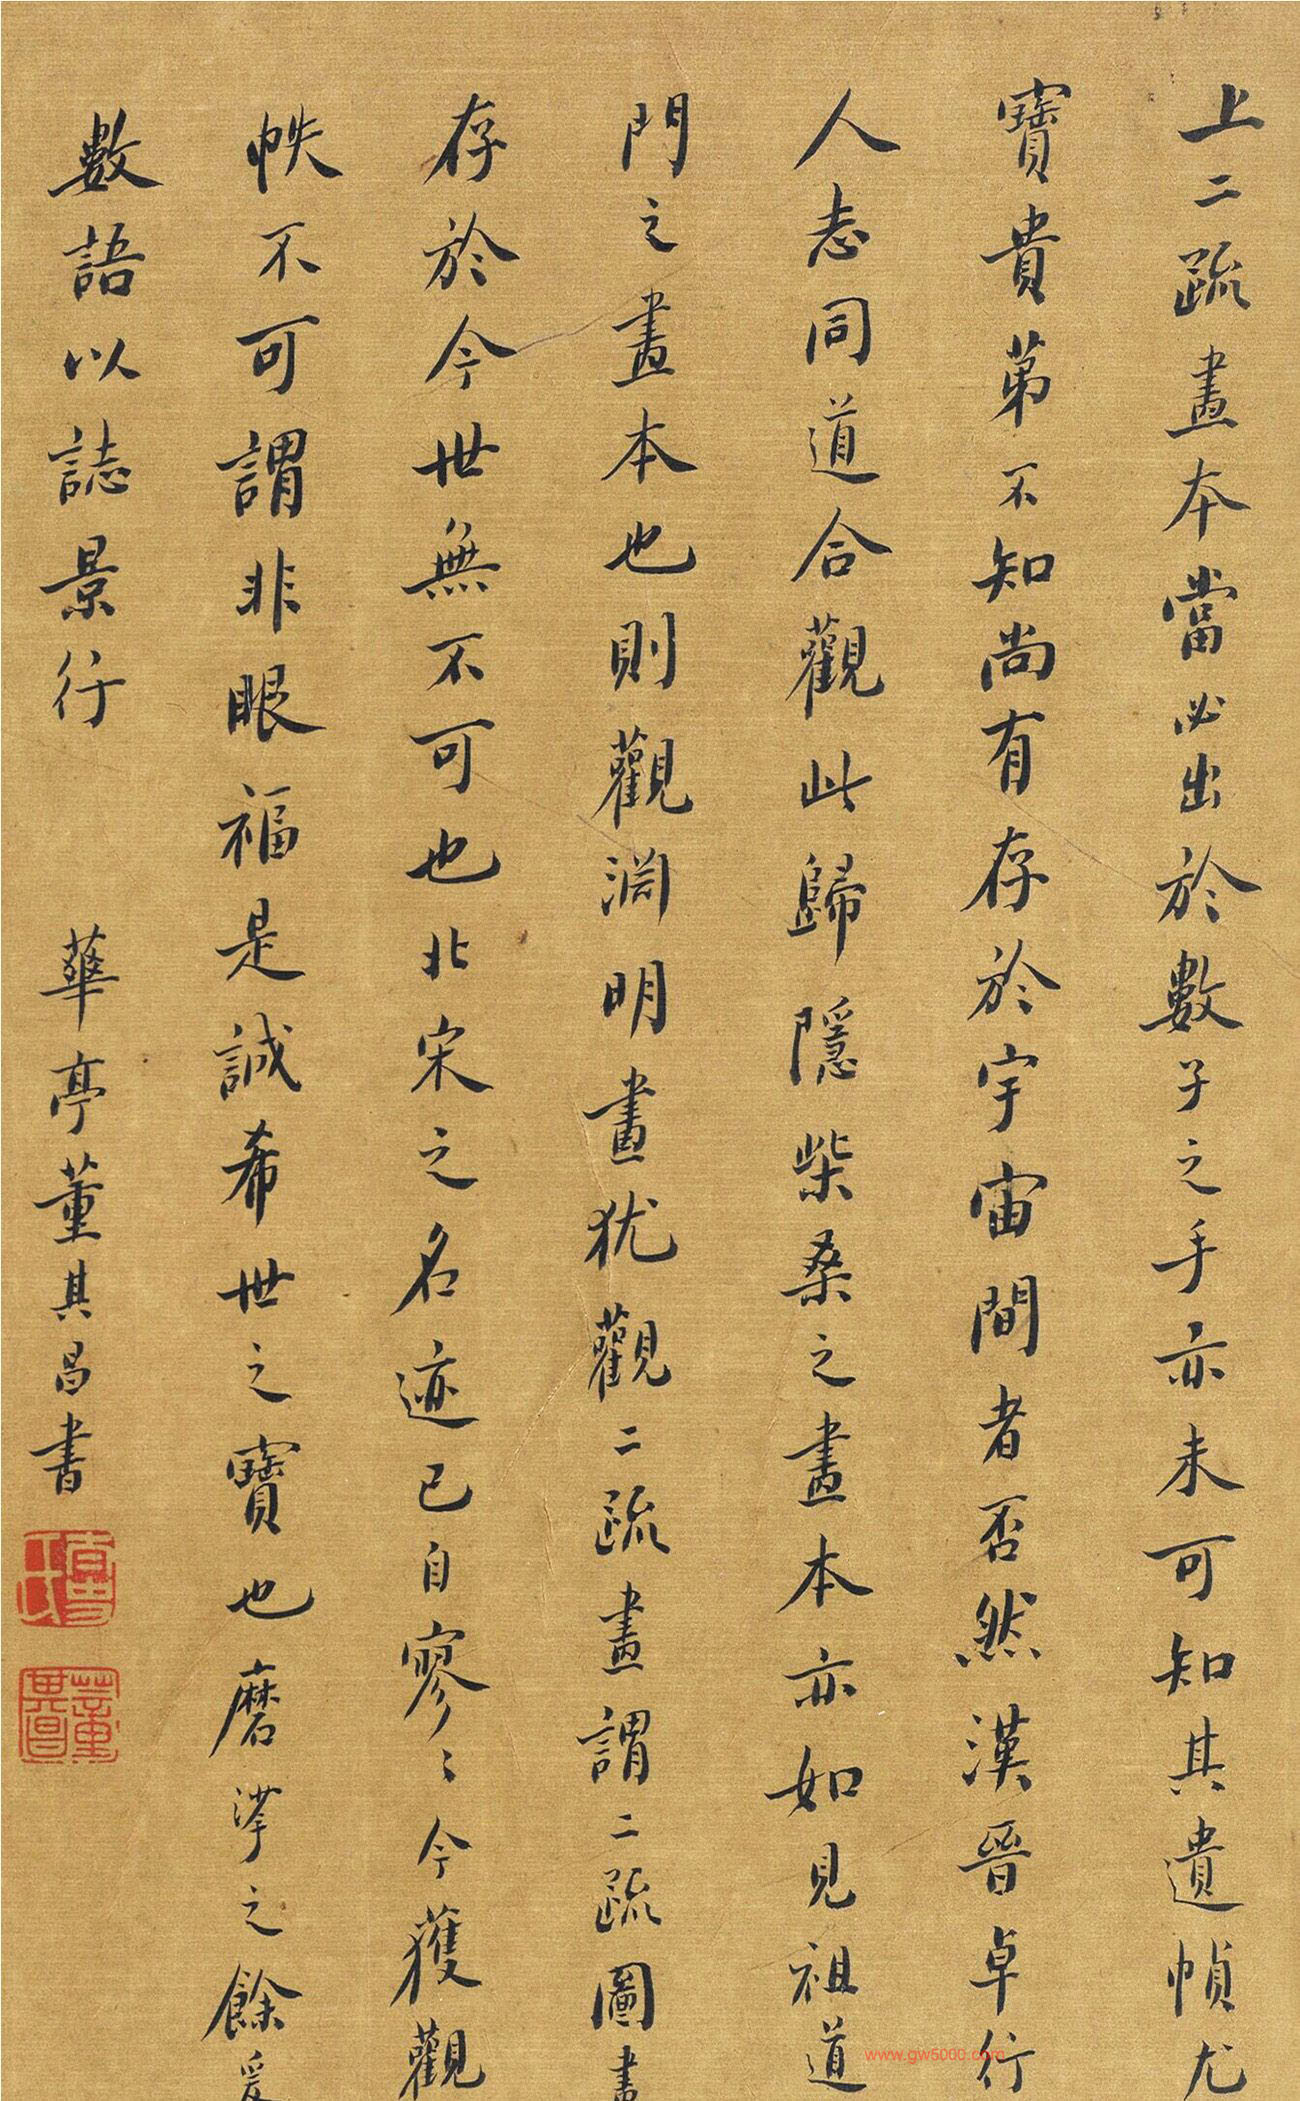 上二疏畫本當必出於數子之手亦未可知其遺幀尤
寶貴第不知尚有存於宇宙間者否然漢晉卓行
人志同道合觀此歸隱柴桑之畫本亦如見祖道
門之畫本也則觀淵明畫猶觀二疏畫謂二疏圖畫
存於今世無不可也北宋之名迹已自寥〻今獲觀
帙不可謂非眼福是誠希世之寶也磨挲之餘爰
數語以誌景行 華亭董其昌書
董其昌
www.gw5000.com